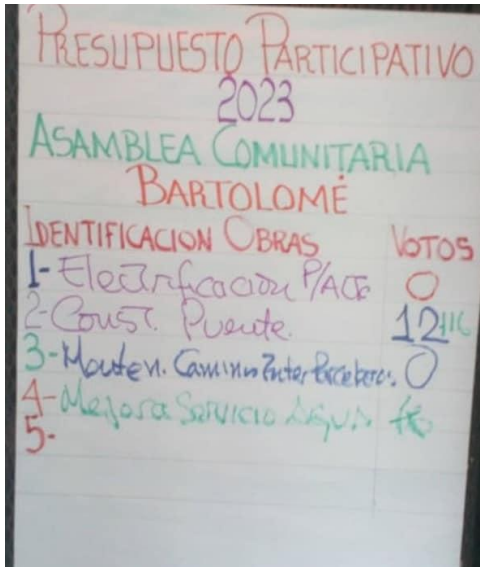 PRESUPUESTO PARTICIPATIVO
2023
ASAMBLEA COMUNITARIA
BARTOLOMÉ
IDENTIFICACION OBRAS VOTOS
1- Electrificacion 0
2- Const. Puente. 12+16
3- Manten. Camino Inter 0
4- Mejora Servicio Agua
5-